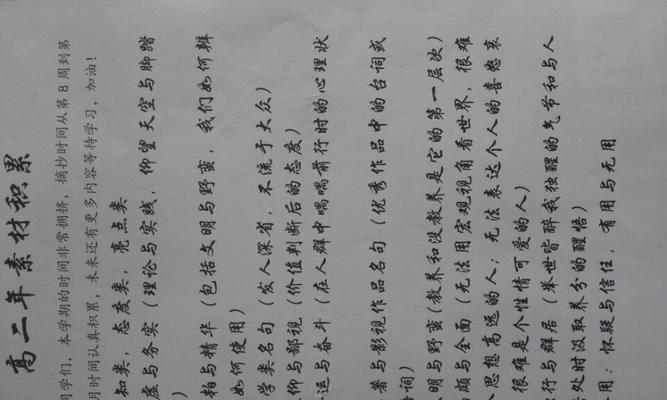 高二年素材积累
同学们，本学期的时间非常拥挤，摘抄时间从第 8 周到第
月时间认真积累，未来还有更多内容等待学习，加油！
知类，态度类，亮点类
虚与务实（理论与实践，仰望天空与脚踏
）
拍与精华（包括文明与野蛮，我们如何辨
如何使用）
学类名句（发人深省，不流于大众）
仰与鄙视（价值判断后的态度）
运与奋斗（在人群中喁喁前行时的心理状
著与影视作品名句（优秀作品中的台词或
词）
明与野蛮（教养和没教养是它的第一层次）
颇与全面（无法用宏观视角看世界，很难
思想高远的人；无法表达个人的喜怒哀
很难是个性情可爱的人）
行与群居（举世皆醉我独醒的气节和与人
处时汲取养分的醒悟）
用：怀疑与信任，有用与无用